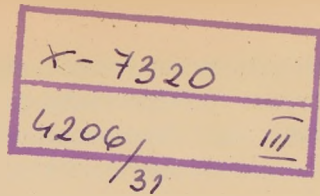 X-7320
4206/31 III